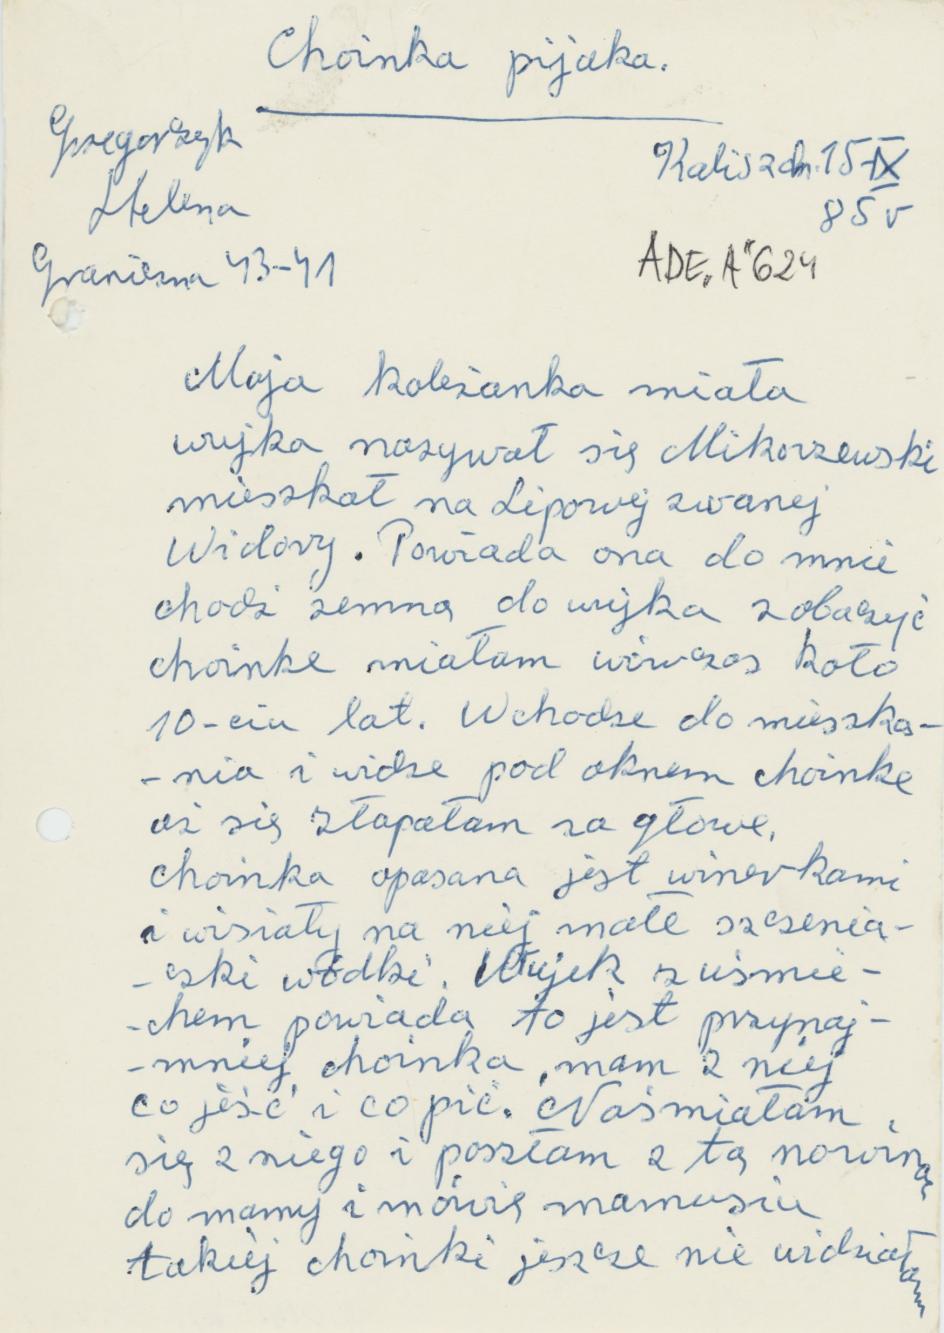 Choinka pijaka.
Grzegorzyk
Helena
Graniczna 43-41
Kalisz dn. 15 IX
85 r
ADE "A" 624
Moja koleżanka miała
wujka nazywał się Mikorzewski
mieszkał na Lipowej zwanej
Widory. Powiada ona do mnie
chodź zemną do wujka zobaczyć
choinke miałam wówczas koło
10-ciu lat. Wchodze do mieszka-
-nia i widze pod oknem choinke
aż się złapałam za głowe.
choinka opasana jest winerkami
i wisiały na niej małe szczenia-
-czki wódki. Wujek z uśmie-
-chem powiada to jest przynaj-
-mniej choinka, mam z niej
co jeść i co pić. Naśmiałam
się z niego i poszłam z tą nowiną
do mamy i mówię mamusiu
takiej choinki jeszcze nie widziałam